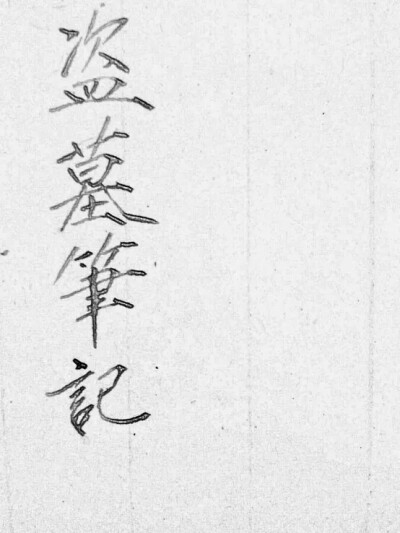 盗墓筆記